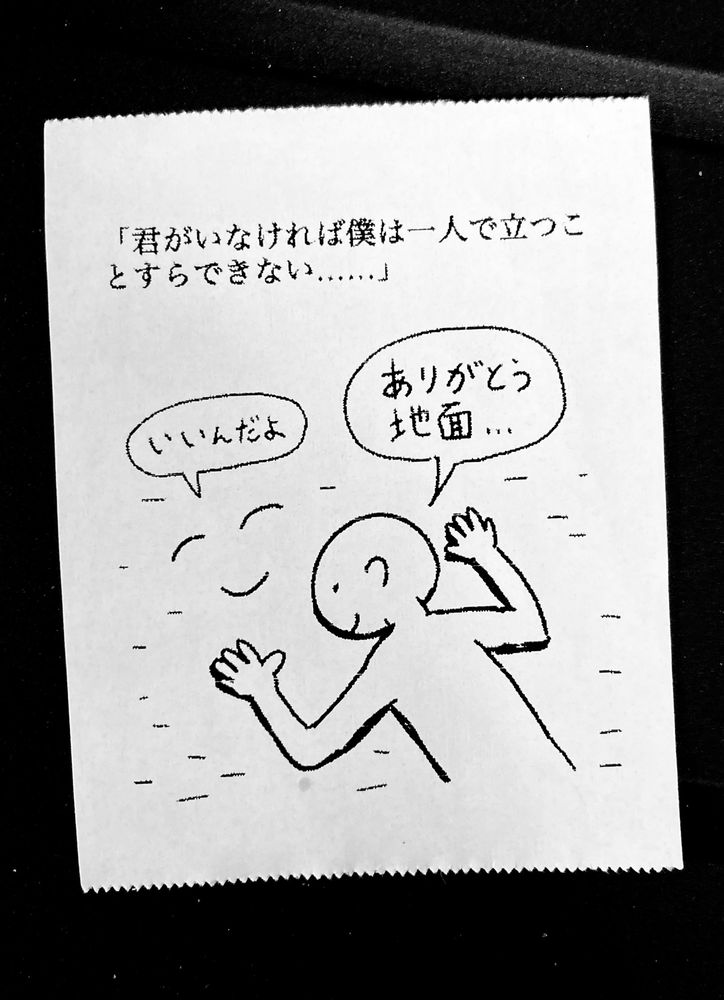 「君がいなければ僕は一人で立つこ
とすらできない……」
ありがとう
地面…
いいんだよ